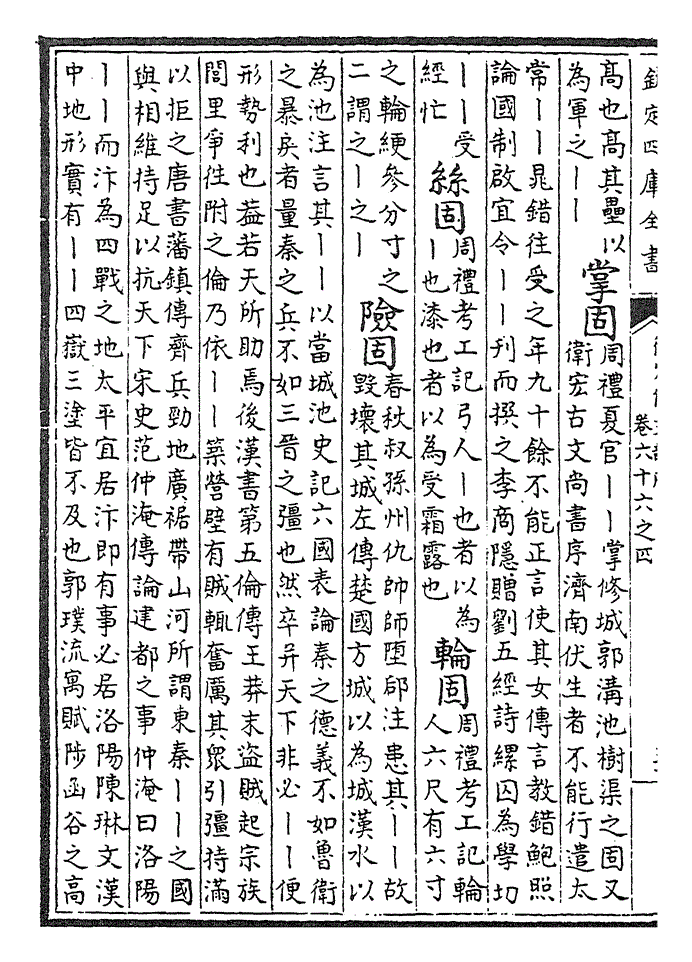 欽定四庫全書
卷六十六之四
高也高其壘以
為軍之丨丨
掌固
周禮夏官丨丨掌修城郭溝池樹渠之固又
衛宏古文尚書序濟南伏生者不能行遣太
常丨丨晁錯往受之年九十餘不能正言使其女傳言教錯鮑照
論國制啟宜令丨丨刋而撰之李商隱贈劉五經詩縲囚為學切
丨丨受
經忙
絲固
周禮考工記弓人丨也者以為
丨也漆也者以為受霜露也
輪固
周禮考工記輪
人六尺有六寸
之輪綆參分寸之
二謂之丨之丨
險固
春秋叔孫州仇帥師堕郈注患其丨丨故
毀壞其城左傳楚國方城以為城漢水以
為池注言其丨丨以當城池史記六國表論秦之德義不如魯衛
之暴戾者量秦之兵不如三晉之彊也然卒并天下非必丨丨便
形勢利也葢若天所助焉後漢書第五倫傳王莽末盗賊起宗族
閭里爭往附之倫乃依丨丨築營壁有賊輒奮厲其眾引彊持滿
以拒之唐書藩鎮傳齊兵勁地廣裾帶山河所謂東秦丨丨之國
與相維持足以抗天下宋史范仲淹傳論建都之事仲淹曰洛陽
丨丨而汴為四戰之地太平宜居汴即有事必居洛陽陳琳文漢
中地形實有丨丨四嶽三塗皆不及也郭璞流寓賦陟函谷之高